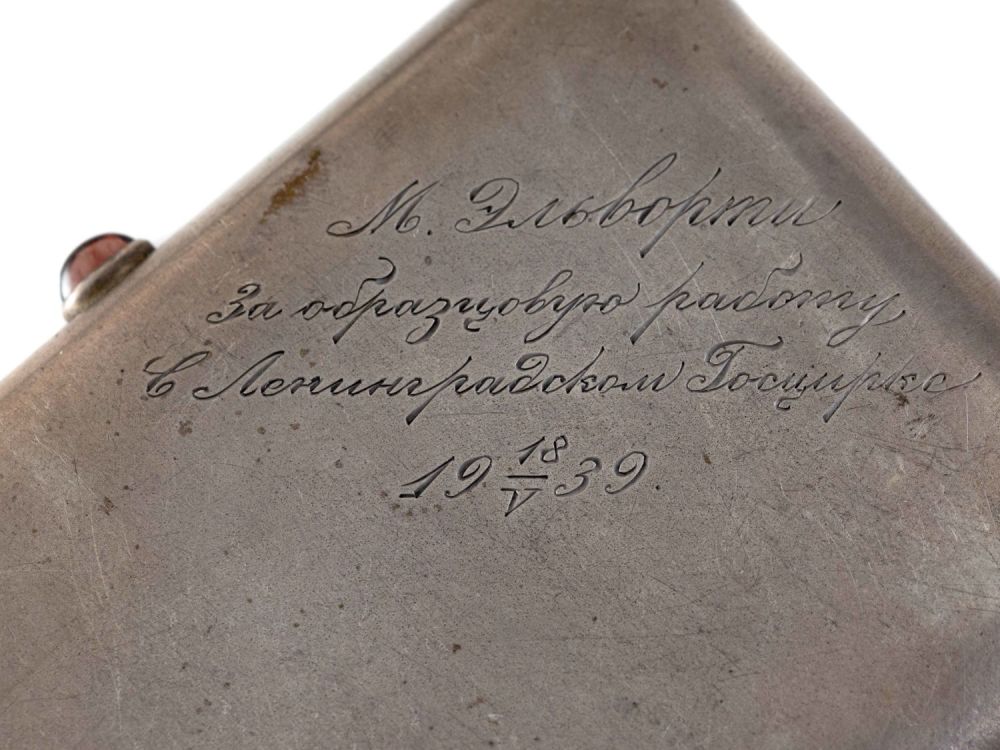 М. Эльворти
За образцовую работу
в Ленинградском Госцирке
19 18/V 39.